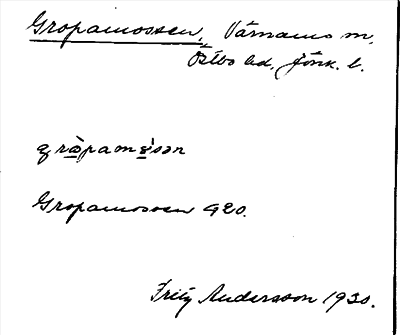 Gropamossen, Värnamo sn,
Östbo hd, Jönk. l.
gròpamo̤s̀ən
Gropamossen 920.
Fritz Andersson 1930.